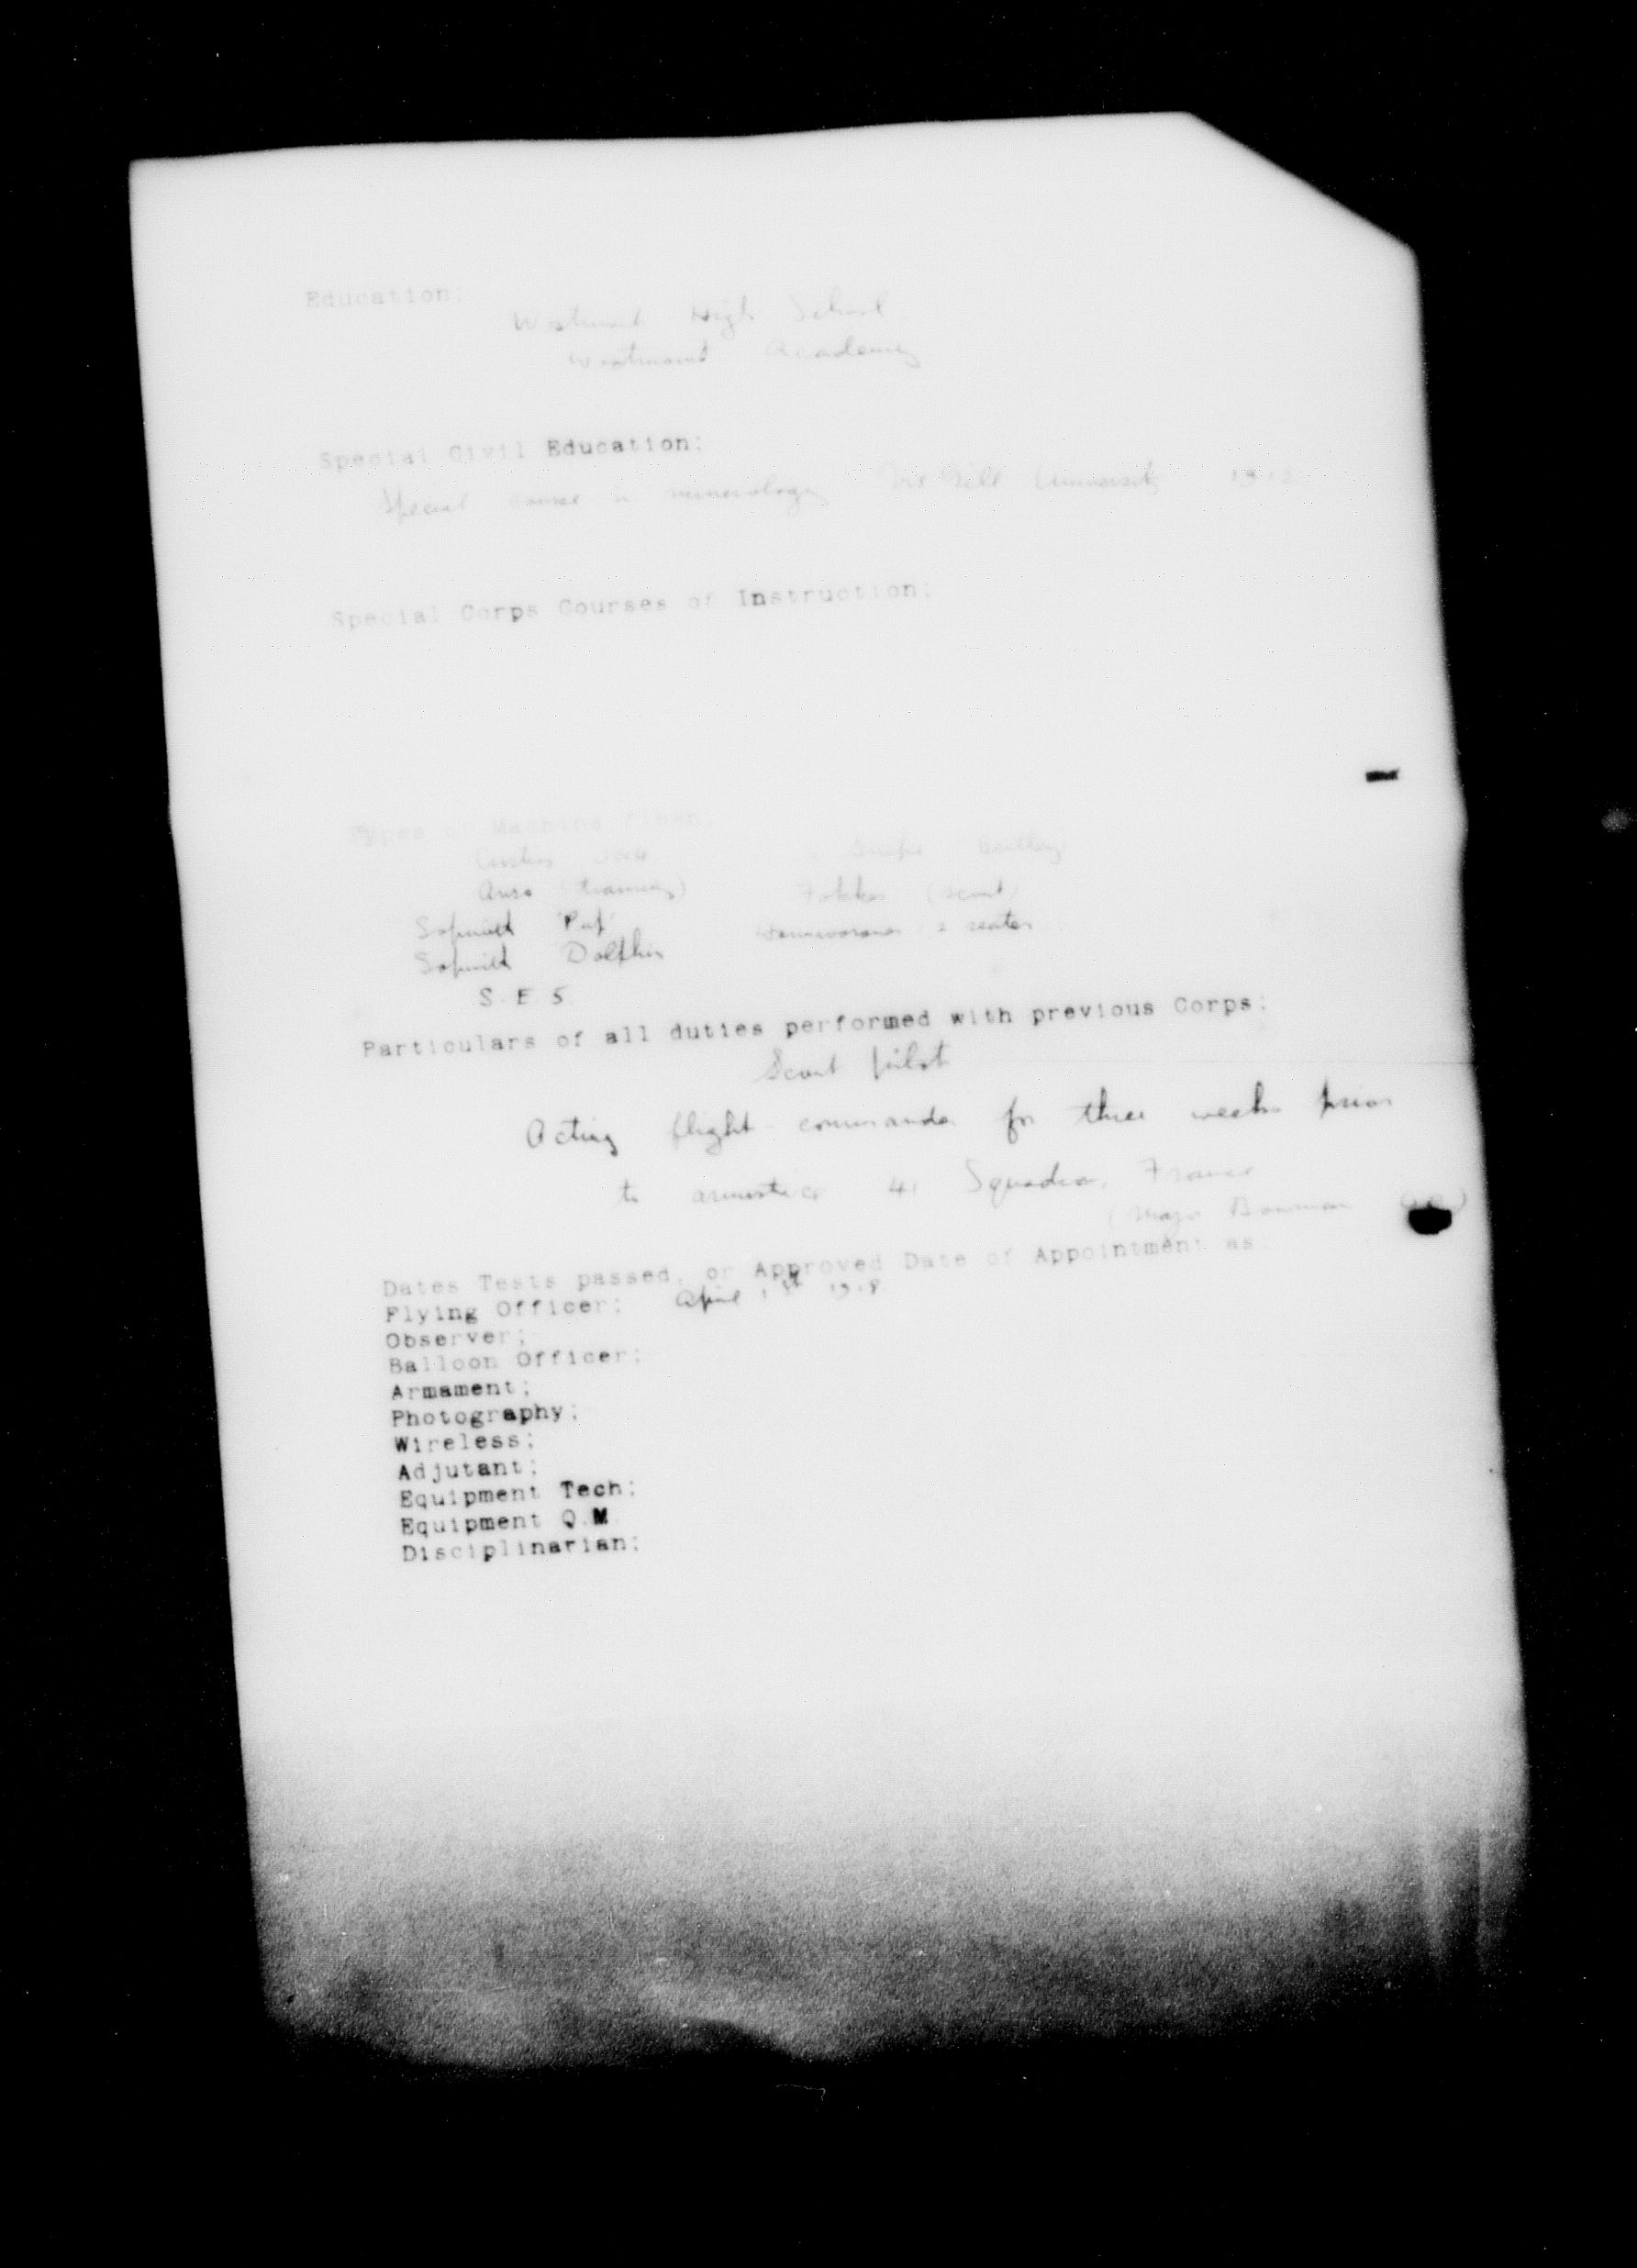 Education;
Westmount High School
Westmount Academy
Special Civil Education;
Special course in minerology McGill University 1912
Special Corps Courses of Instruction;
Types of Machine Flown;
Curtiss Snipe Bentley
Avro (training) Fokker (scout)
Sopwith 'Pup' 2 seater
Sopwith Dolphin
S. E. 5
Particulars of all duties performed with previous Corps;
Scout pilot
Acting flight-commander for three weeks prior
to armistice 41 Squadron, France
(Major Bowman
Dates Tests passed, or Approved Date of Appointment as
Flying Officer; April 1st 1918
Observer;
Balloon Officer;
Armament;
Photography;
Wireless;
Adjutant;
Equipment Tech;
Equipment Q.M.
Disciplinarian;